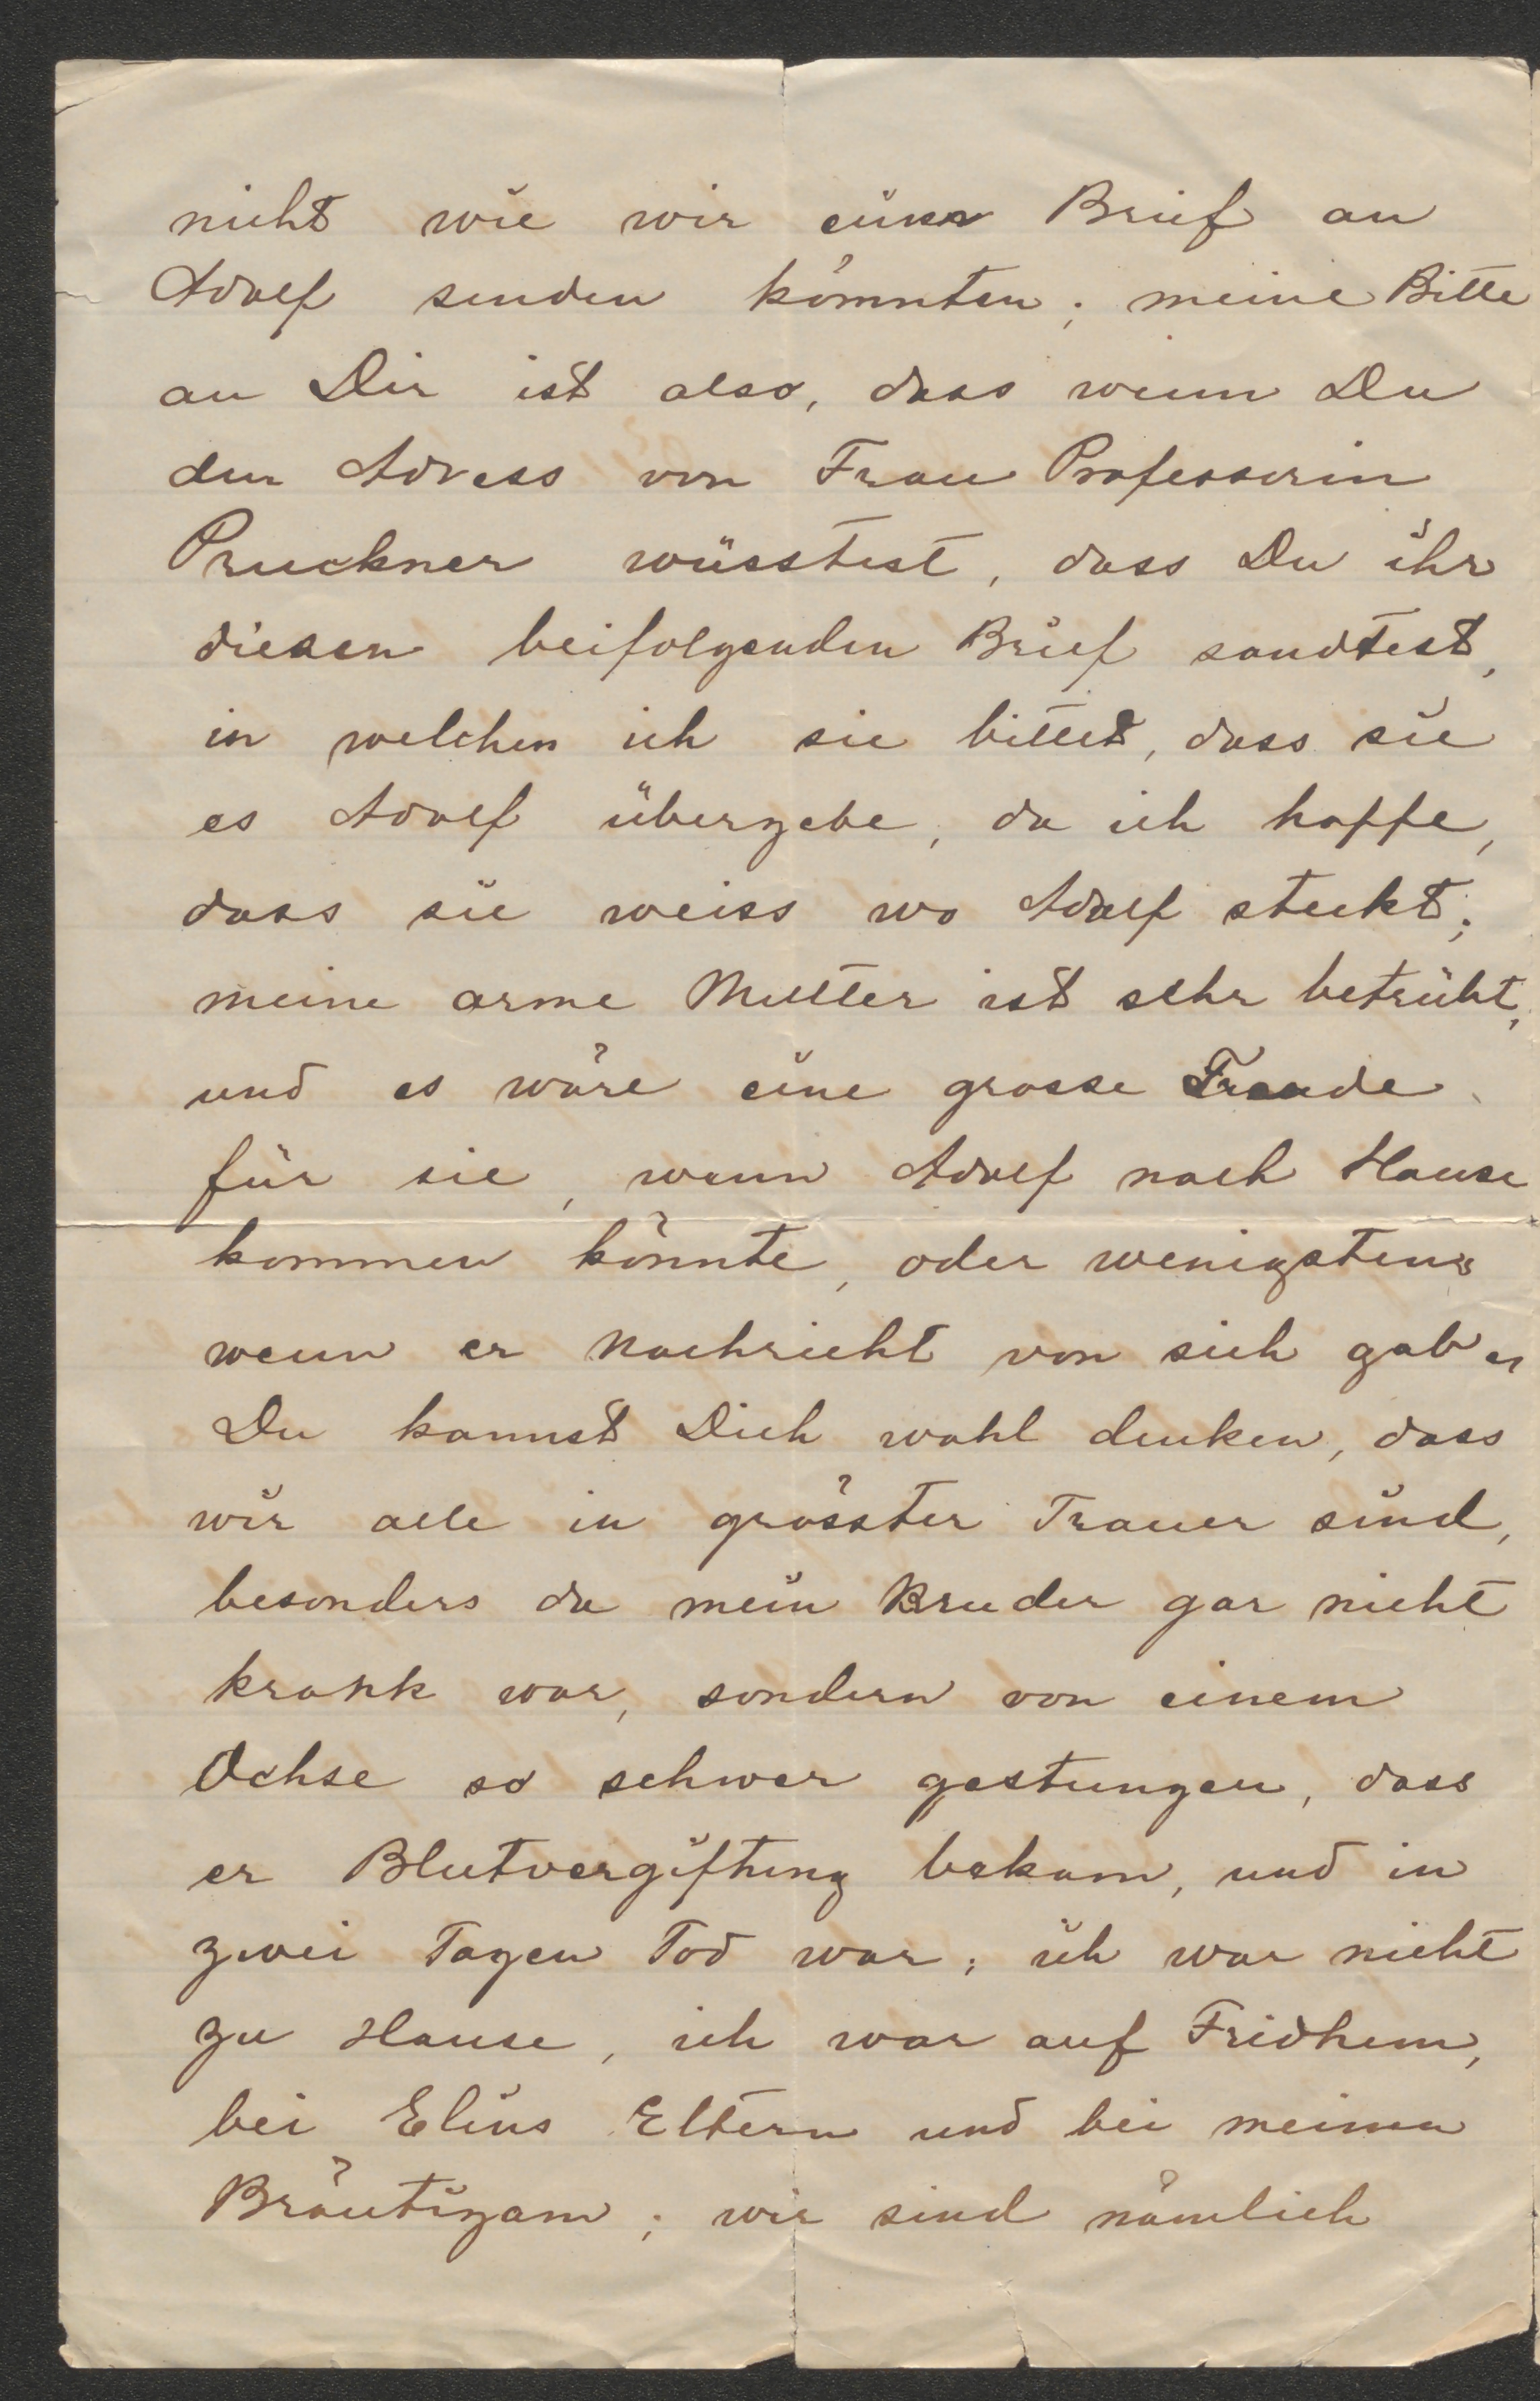 nicht wie wir einen Brief an
Adolf senden könnten; meine Bitte
an Dir ist also, dass wenn Du
den Adress von Frau Professorin
Pruckner wüsstest, dass Du ihr
diesen beifolgenden Brief sandtest,
in welchen ich sie bittet, dass sie
es Adolf übergebe, da ich hoffe,
dass sie weiss wo Adolf steckt;
meine arme Mutter ist sehr betrübt,
und es wäre eine grosse Freude
für sie, wenn Adolf nach Hause
kommen könnte, oder wenigstens
wenn er Nachricht von sich gab
Du kannst Dich wohl denken, dass
wir alle in grösster Trauer sind,
besonders da mein Bruder gar nicht
krank war, sondern von einem
Ochse so schwer gestungen, dass
er Blutvergiftung bekam, und in
zwei Tagen Tod war; ich war nicht
zu Hause, ich war auf Fridhem,
bei Elins Eltern und bei meinen
Bräutigam; wir sind nämlich